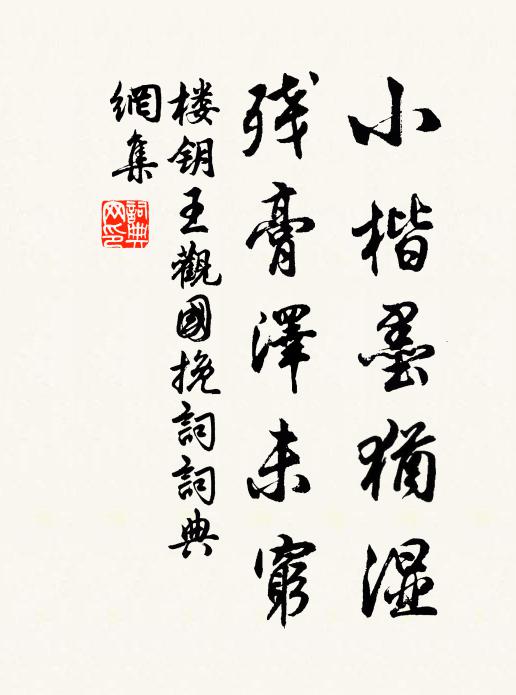 小楷墨猶湿
残膏澤未窮
楼钥王觀國挽詞詞典
網集
詞典網印